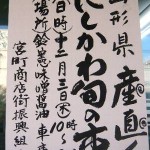 山形県 産直
にしかわ旬の市
日時 十二月三日(木)10〜
場所 鈴木味噌醤油 車
宮町商店街振興組